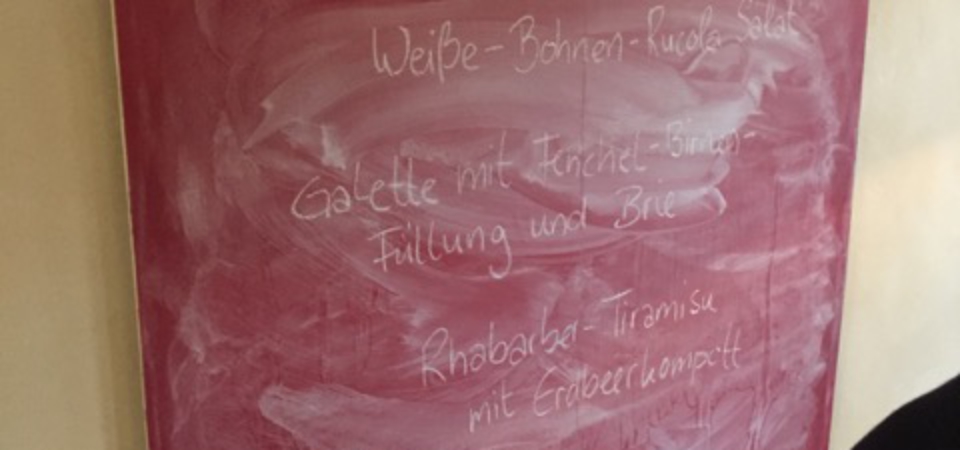 Weiße-Bohnen-Rucola Salat
Galette mit Fenchel-Birnen-
Füllung und Brie
Rhabarber-Tiramisu
mit Erdbeerkompott